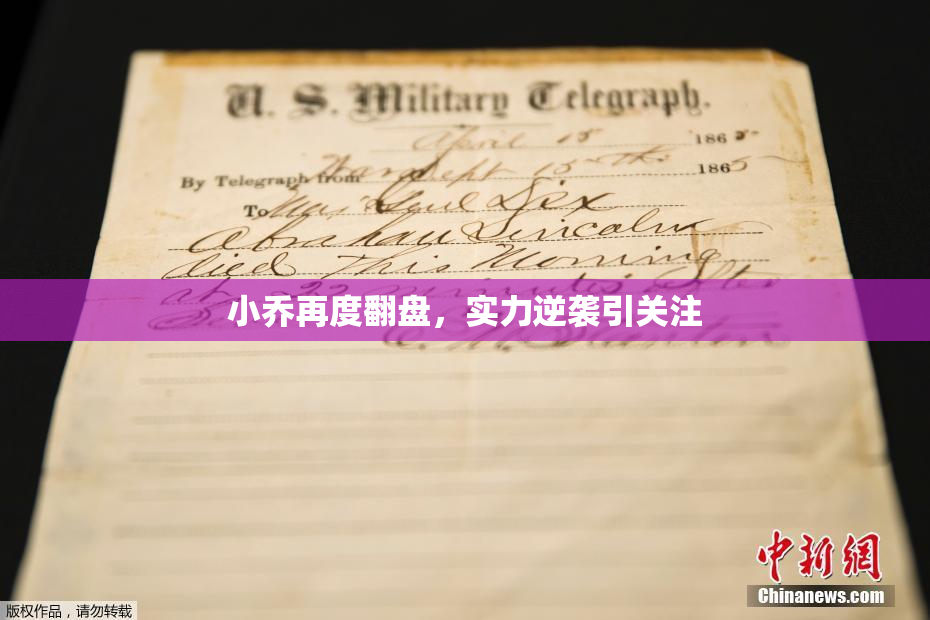 U. S. Military Telegraph.
April 15 1865
By Telegraph from War Dept 15th 1865
To Maj Genl Dix
Abraham Lincoln
died This Morning
at 22 minutes after
小乔再度翻盘，实力逆袭引关注
中新网
Chinanews.com
版权作品，请勿转载